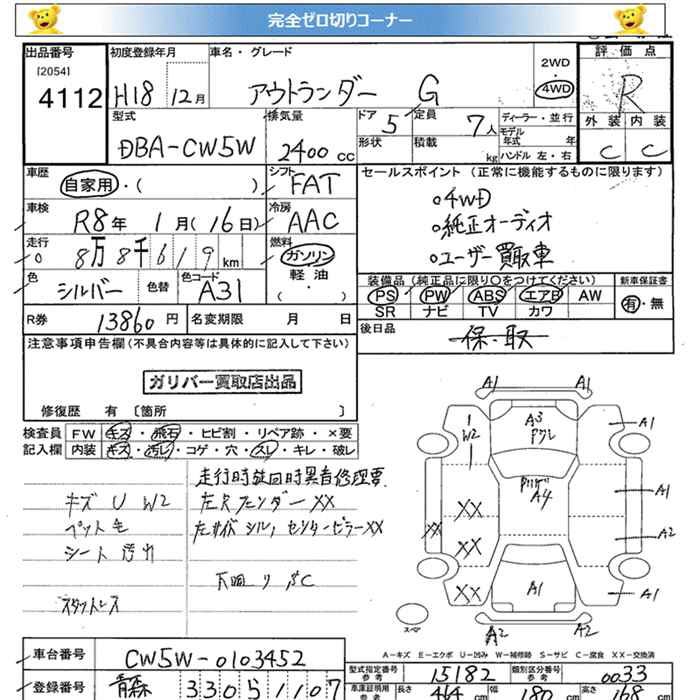 完全ゼロ切りコーナー
出品番号 初度登録年月 車名・グレード 評価点
[2054]
4112 H18 12月 アウトランダー G 2WD 4WD R
型式 排気量 ドア 5 定員 7人 ディーラー・並行 外装 内装
DBA-CW5W 2400 cc 形状 積載 kg モデル年式 年 ハンドル 左・右 C C
車歴 シフト セールスポイント (正常に機能するものに限ります)
自家用・( ) FAT ○4WD
車検 R8年 1月(16日) 冷房 AAC ○純正オーディオ
走行 8万8千619km 燃料 ガソリン ○ユーザー買取車
軽油
(・)
色 シルバー 色替 色コード A31
装備品(純正品に限り○をつけてください) 新車保証書
PS PW ABS エアB AW 有・無
SR ナビ TV カワ
R券 13860円 名変期限 月 日 後日品 保・取
注意事項申告欄(不具合内容等は具体的に記入して下さい)
ガリバー買取店出品
修復歴 有 〔箇所 〕
検査員 FW キズ・飛石・ヒビ割・リペア跡・×要
記入欄 内装 キズ・汚レ・コゲ・穴・スレ・キレ・破レ
キズ U W2 左Fフェンダー XX
ペット毛
シート 汚れ
下回り SC
スタットレス
A1 A1
A3
A1
W2
A4
A1
XX XX
A2
XX
XX A1 A1
A2 A2
スペア
A-キズ E-エクボ U-凹み W-補修跡 S-サビ C-腐食 XX-交換済
車台番号 CW5W-0103452
型式指定番号 参考 15182 類別区分番号 参考 0033
登録番号 青森 330 51107
車庫証明用 参考 長さ 464 cm 幅 180 cm 高さ 168 cm